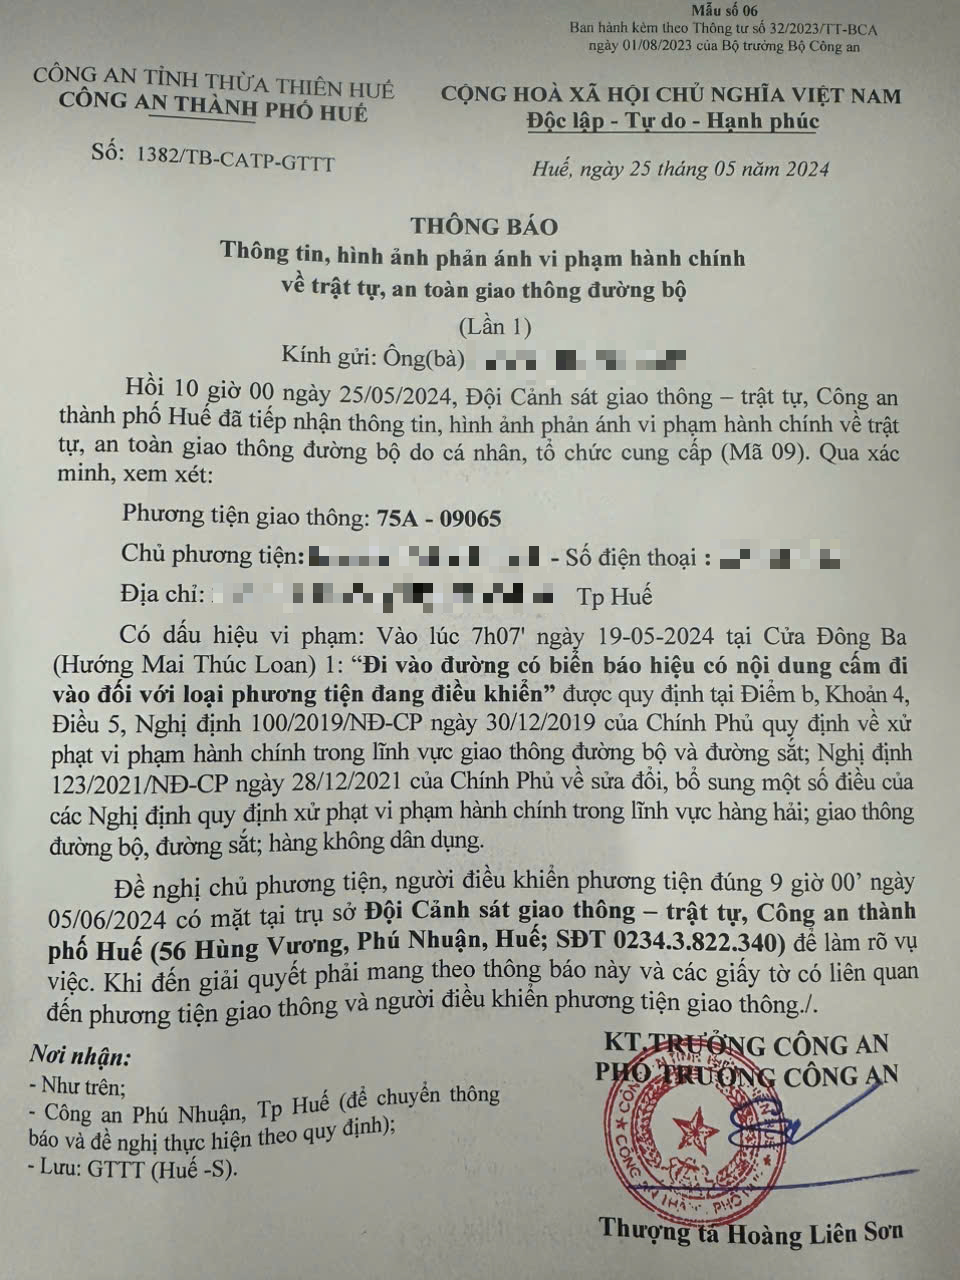 Mẫu số 06
Ban hành kèm theo Thông tư số 32/2023/TT-BCA
ngày 01/08/2023 của Bộ trưởng Bộ Công an
CÔNG AN TỈNH THỪA THIÊN HUẾ
CÔNG AN THÀNH PHỐ HUẾ
Số: 1382/TB-CATP-GTTT
CỘNG HOÀ XÃ HỘI CHỦ NGHĨA VIỆT NAM
Độc lập - Tự do - Hạnh phúc
Huế, ngày 25 tháng 05 năm 2024
THÔNG BÁO
Thông tin, hình ảnh phản ánh vi phạm hành chính
về trật tự, an toàn giao thông đường bộ
(Lần 1)
Kính gửi: Ông(bà)
Hồi 10 giờ 00 ngày 25/05/2024, Đội Cảnh sát giao thông – trật tự, Công an
thành phố Huế đã tiếp nhận thông tin, hình ảnh phản ánh vi phạm hành chính về trật
tự, an toàn giao thông đường bộ do cá nhân, tổ chức cung cấp (Mã 09). Qua xác
minh, xem xét:
Phương tiện giao thông: 75A - 09065
Chủ phương tiện: - Số điện thoại :
Địa chỉ: Tp Huế
Có dấu hiệu vi phạm: Vào lúc 7h07' ngày 19-05-2024 tại Cửa Đông Ba
(Hướng Mai Thúc Loan) 1: “Đi vào đường có biển báo hiệu có nội dung cấm đi
vào đối với loại phương tiện đang điều khiển” được quy định tại Điểm b, Khoản 4,
Điều 5, Nghị định 100/2019/NĐ-CP ngày 30/12/2019 của Chính Phủ quy định về xử
phạt vi phạm hành chính trong lĩnh vực giao thông đường bộ và đường sắt; Nghị định
123/2021/NĐ-CP ngày 28/12/2021 của Chính Phủ về sửa đổi, bổ sung một số điều của
các Nghị định quy định xử phạt vi phạm hành chính trong lĩnh vực hàng hải; giao thông
đường bộ, đường sắt; hàng không dân dụng.
Đề nghị chủ phương tiện, người điều khiển phương tiện đúng 9 giờ 00’ ngày
05/06/2024 có mặt tại trụ sở Đội Cảnh sát giao thông – trật tự, Công an thành
phố Huế (56 Hùng Vương, Phú Nhuận, Huế; SĐT 0234.3.822.340) để làm rõ vụ
việc. Khi đến giải quyết phải mang theo thông báo này và các giấy tờ có liên quan
đến phương tiện giao thông và người điều khiển phương tiện giao thông./.
Nơi nhận:
- Như trên;
- Công an Phú Nhuận, Tp Huế (để chuyển thông
báo và đề nghị thực hiện theo quy định);
- Lưu: GTTT (Huế -S).
KT.TRƯỞNG CÔNG AN
PHÓ TRƯỞNG CÔNG AN
Thượng tá Hoàng Liên Sơn